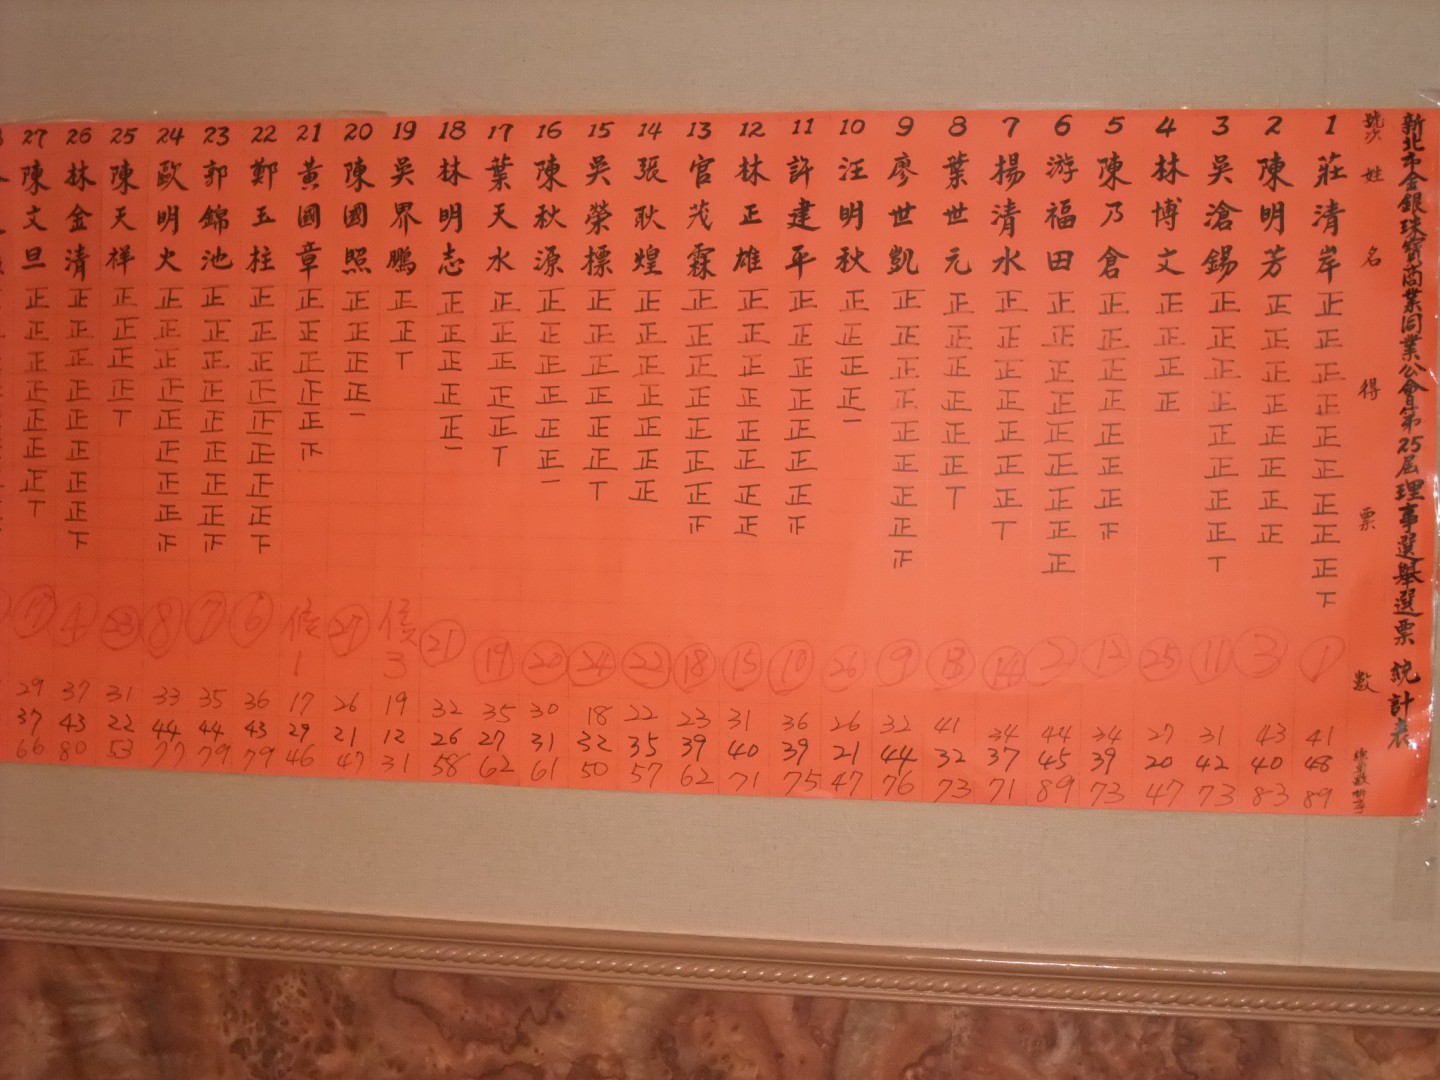 新北市金銀珠寶商業同業公會第25屆理事選舉選票統計表
號次 姓名 得票數
1 莊清岸 正正正正正正正正正下 ① 41 48 89
2 陳明芳 正正正正正正正正 ③ 43 40 83
3 吳滄錫 正正正正正正正正丅 ⑪ 31 42 73
4 林博文 正正正正 ㉕ 27 20 47
5 陳乃倉 正正正正正正正𤴓 ⑫ 34 39 73
6 游福田 正正正正正正正正正 ② 44 45 89
7 楊清水 正正正正正正正丅 ⑭ 34 37 71
8 葉世元 正正正正正正丅 ⑬ 41 32 73
9 廖世凱 正正正正正正正正𤴓 ⑨ 32 44 76
10 汪明秋 正正正正一 ㉖ 26 21 47
11 許建平 正正正正正正正𤴓 ⑩ 36 39 75
12 林正雄 正正正正正正正正 ⑮ 31 40 71
13 官茂霖 正正正正正正正𤴓 ⑱ 23 39 62
14 張耿煌 正正正正正正正 ㉒ 22 35 57
15 吳榮標 正正正正正正丅 ㉔ 18 32 50
16 陳秋源 正正正正正正一 ⑳ 30 31 61
17 葉天水 正正正正正丅 ⑲ 35 27 62
18 林明志 正正正正正一 ㉑ 32 26 58
19 吳界鵬 正正丅 候3 19 12 31
20 陳國照 正正正正一 ㉗ 26 21 47
21 黃國章 正正正正正𤴓 候1 17 29 46
22 鄭玉柱 正正正正正正正正下 ⑥ 36 43 79
23 郭錦池 正正正正正正正正𤴓 ⑦ 35 44 79
24 歐明火 正正正正正正正正𤴓 ⑧ 33 44 77
25 陳天祥 正正正正丅 ㉓ 31 22 53
26 林金清 正正正正正正正正下 ④ 37 43 80
27 陳文旦 正正正正正正正丅 ⑰ 29 37 66